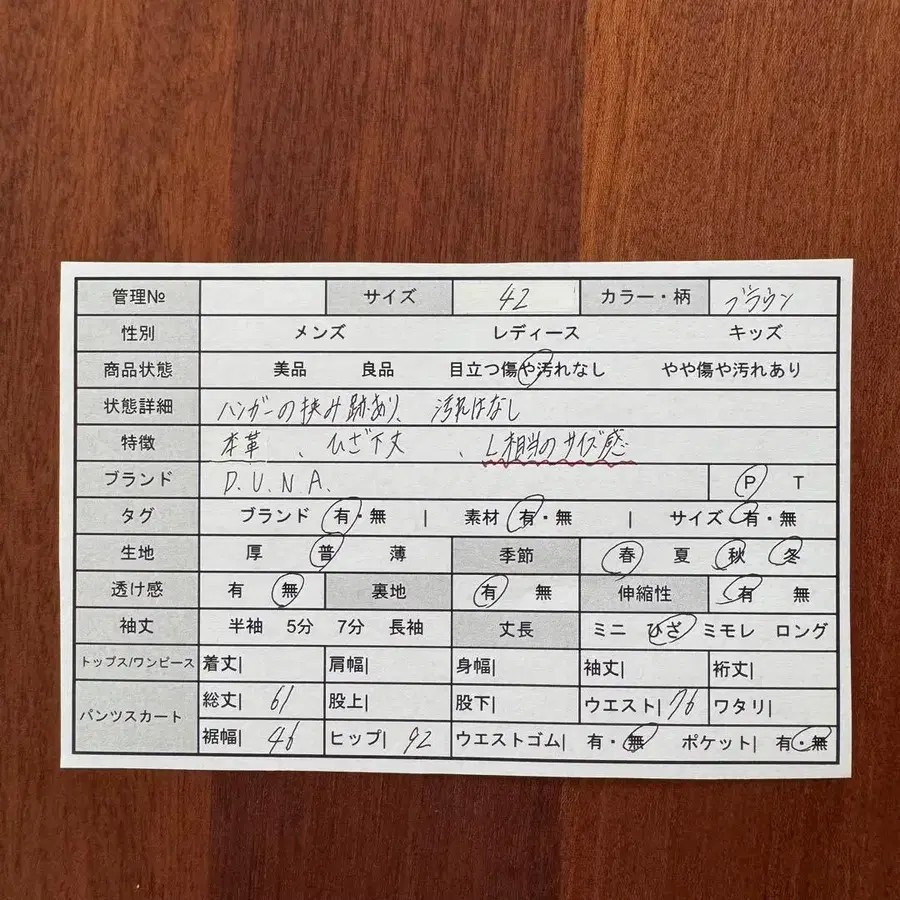 管理№ サイズ 42 カラー・柄 ブラウン
性別 メンズ レディース キッズ
商品状態 美品 良品 目立つ傷や汚れなし やや傷や汚れあり
状態詳細 ハンガーの挟み跡あり、汚れはなし
特徴 本革、ひざ下丈、L相当のサイズ感
ブランド D.U.N.A. P T
タグ ブランド 有・無 | 素材 有・無 | サイズ 有・無
生地 厚 普 薄 季節 春 夏 秋 冬
透け感 有 無 裏地 有 無 伸縮性 有 無
袖丈 半袖 5分 7分 長袖 丈長 ミニ ひざ ミモレ ロング
トップス/ワンピース 着丈| 肩幅| 身幅| 袖丈| 裄丈|
パンツスカート 総丈| 61 股上| 股下| ウエスト| 76 ワタリ|
裾幅| 46 ヒップ| 92 ウエストゴム| 有・無 ポケット| 有・無